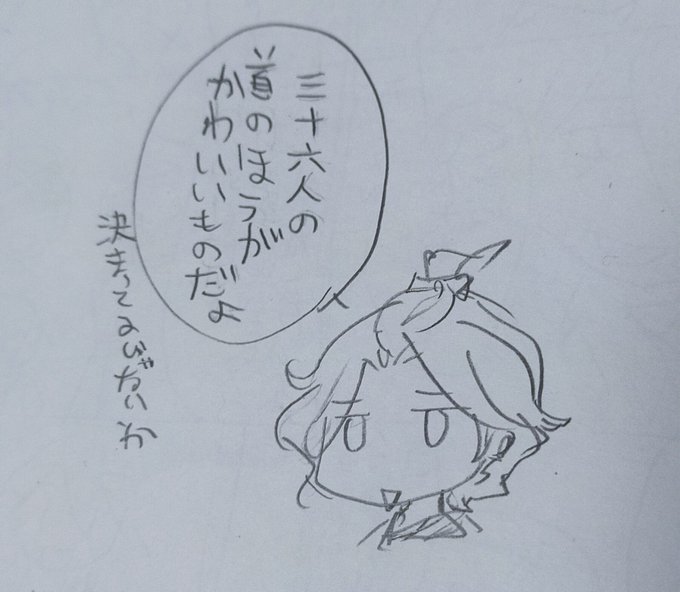 三十六人の
首のほうが
かわいいものだよ
決まってるじゃないか